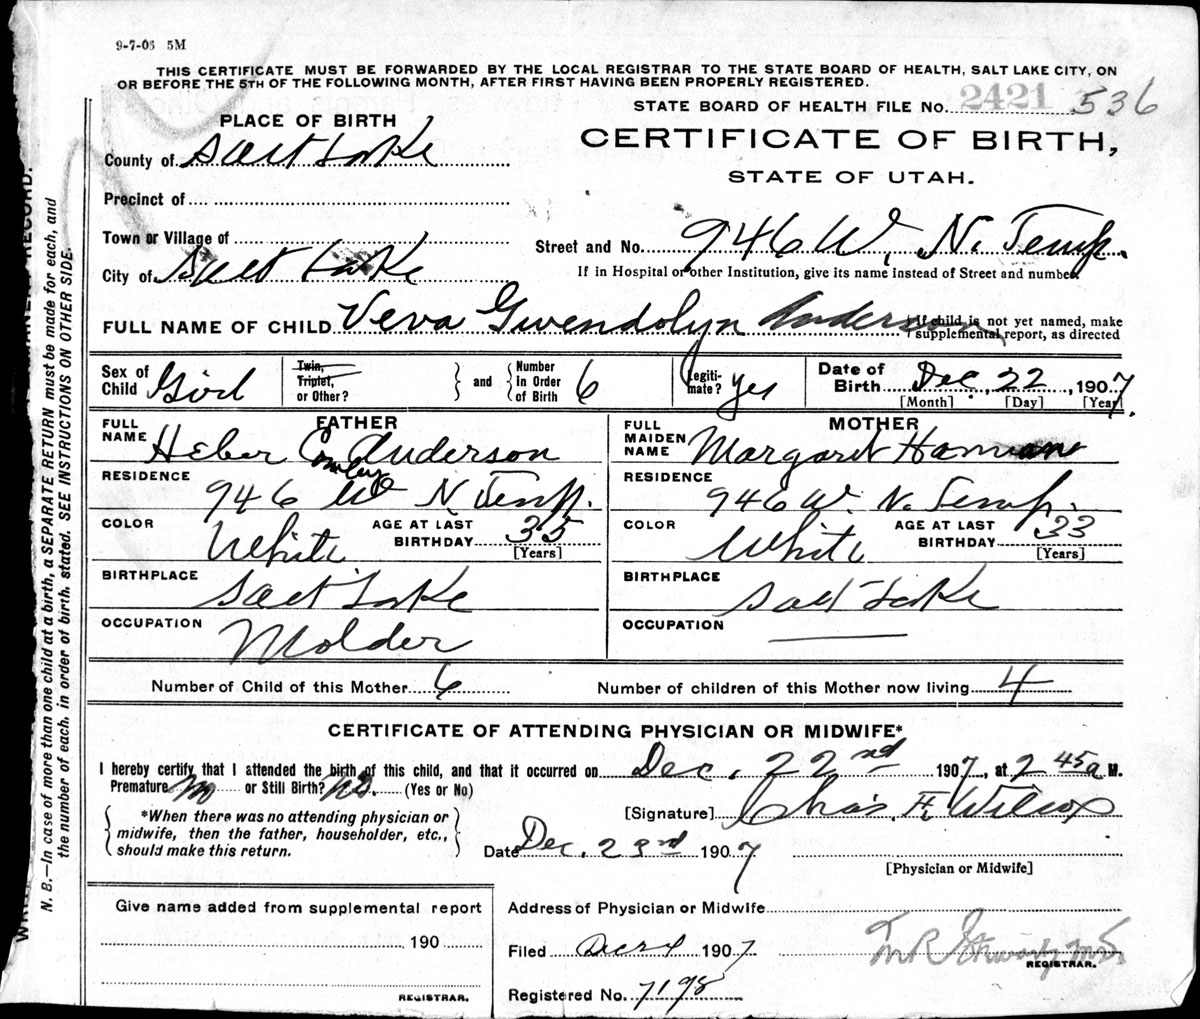 9-7-06 5M
THIS CERTIFICATE MUST BE FORWARDED BY THE LOCAL REGISTRAR TO THE STATE BOARD OF HEALTH, SALT LAKE CITY, ON
OR BEFORE THE 5TH OF THE FOLLOWING MONTH, AFTER FIRST HAVING BEEN PROPERLY REGISTERED.
STATE BOARD OF HEALTH FILE No. 2421 536
PLACE OF BIRTH
CERTIFICATE OF BIRTH,
STATE OF UTAH.
County of Salt Lake
Precinct of
Town or Village of
Street and No. 946 W. N. Temp.
City of Salt Lake
If in Hospital or other Institution, give its name instead of Street and number.
FULL NAME OF CHILD Veva Gwendolyn Anderson
If child is not yet named, make
supplemental report, as directed
Sex of Child Girl
Twin, Triplet, or Other?
and Number in Order of Birth 6
Legiti-mate? yes
Date of Birth Dec. 22, 1907.
[Month] [Day] [Year]
FATHER
FULL NAME Heber C. Anderson
MOTHER
FULL MAIDEN NAME Margaret
RESIDENCE 946 W N. Temp.
RESIDENCE 946 W. N. Temp.
COLOR White AGE AT LAST BIRTHDAY 35 [Years]
COLOR White AGE AT LAST BIRTHDAY 33 [Years]
BIRTHPLACE Salt Lake
BIRTHPLACE Salt Lake
OCCUPATION Molder
OCCUPATION
Number of Child of this Mother 6
Number of children of this Mother now living 4
CERTIFICATE OF ATTENDING PHYSICIAN OR MIDWIFE*
I hereby certify that I attended the birth of this child, and that it occurred on Dec. 22nd 1907, at 2 45 a M.
Premature No or Still Birth? No. (Yes or No)
*When there was no attending physician or
midwife, then the father, householder, etc.,
should make this return.
[Signature] Chas. F. Wilcox
Date Dec. 23rd 1907
[Physician or Midwife]
Give name added from supplemental report
190
REGISTRAR.
Address of Physician or Midwife
Filed Dec 1907
REGISTRAR.
Registered No. 7198
N. B.—In case of more than one child at a birth, a SEPARATE RETURN must be made for each, and
the number of each, in order of birth, stated. SEE INSTRUCTIONS ON OTHER SIDE.